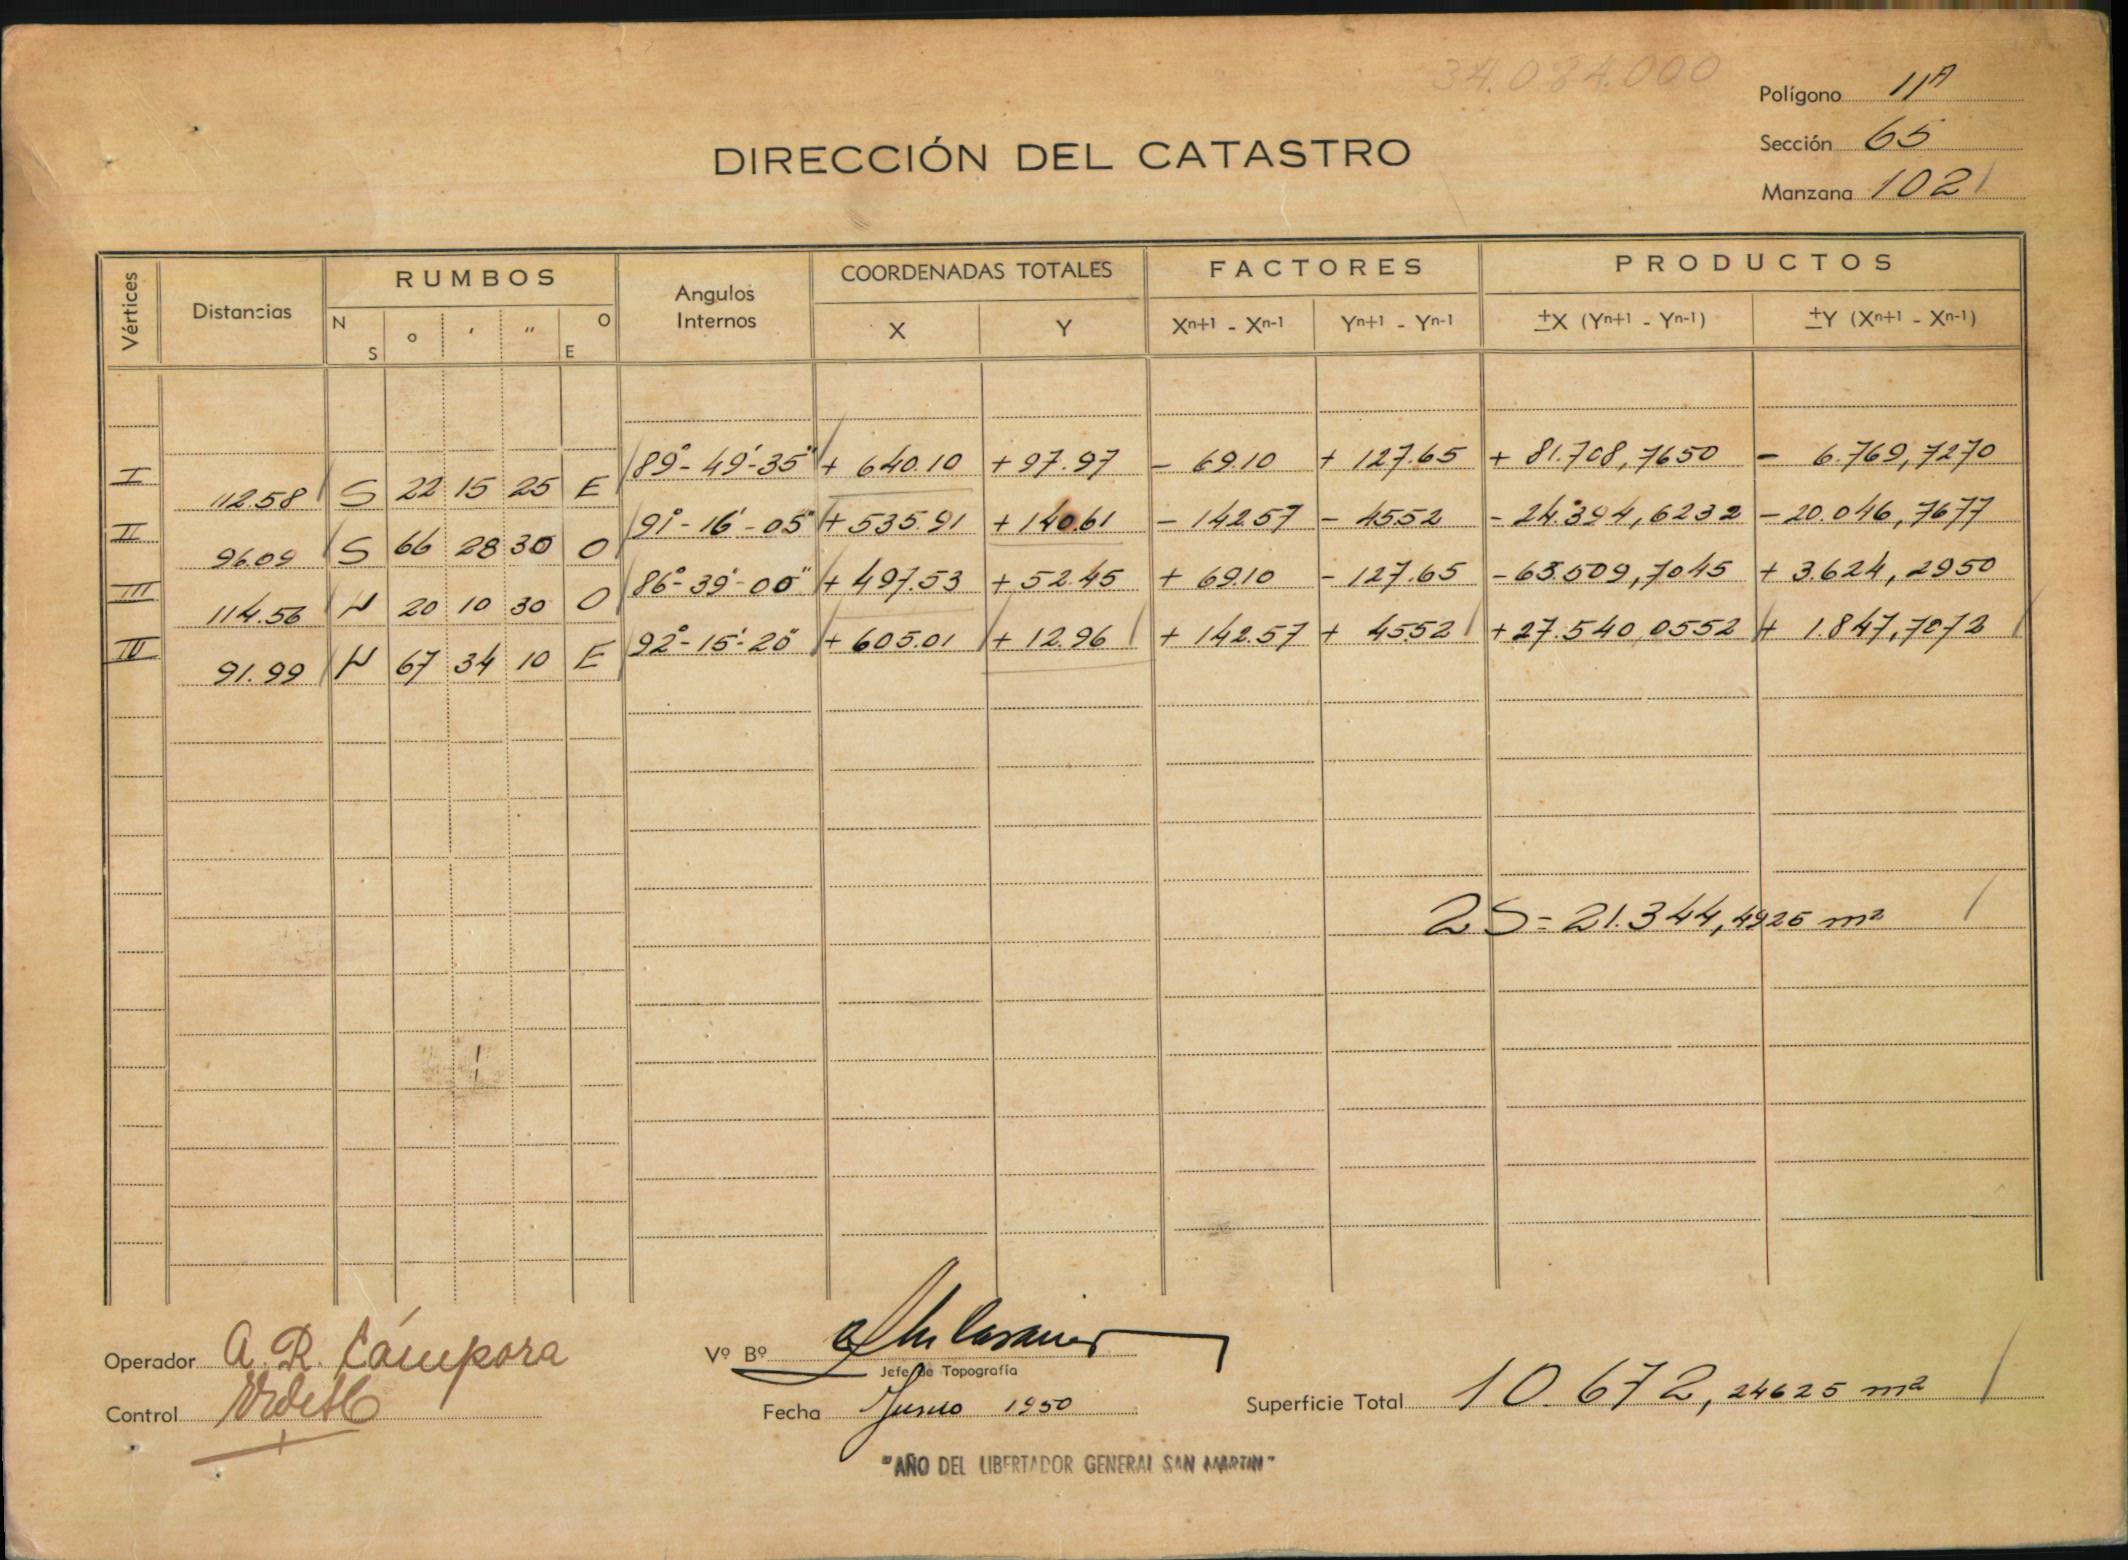 34.034.000
Polígono 11ᴬ
DIRECCIÓN DEL CATASTRO
Sección 65
Manzana 102
Vértices Distancias RUMBOS Angulos Internos COORDENADAS TOTALES FACTORES PRODUCTOS
N S ° ' " O E X Y Xn+1 - Xn-1 Yn+1 - Yn-1 ±X (Yn+1 - Yn-1) ±Y (Xn+1 - Xn-1)
I 89°-49'-35" + 640.10 + 97.97 - 69.10 + 127.65 + 81.708,7650 - 6.769,7270
112.58 S 22 15 25 E
II 91°-16'-05" + 535.91 + 140.61 - 142.57 - 45.52 - 24.394,6232 - 20.046,7677
96.09 S 66 28 30 O
III 86°-39'-00" + 497.53 + 52.45 + 69.10 - 127.65 - 63.509,7045 + 3.624,2950
114.56 N 20 10 30 O
IV 92°-15'-20" + 605.01 + 12.96 + 142.57 + 45.52 + 27.540,0552 + 1.847,7072
91.99 N 67 34 10 E
2S = 21.344,4925 m²
Operador A. R. Cámpora
Vº Bº
Jefe de Topografía
Control
Fecha Junio 1950
Superficie Total 10.672,24625 m²
"AÑO DEL LIBERTADOR GENERAL SAN MARTIN"